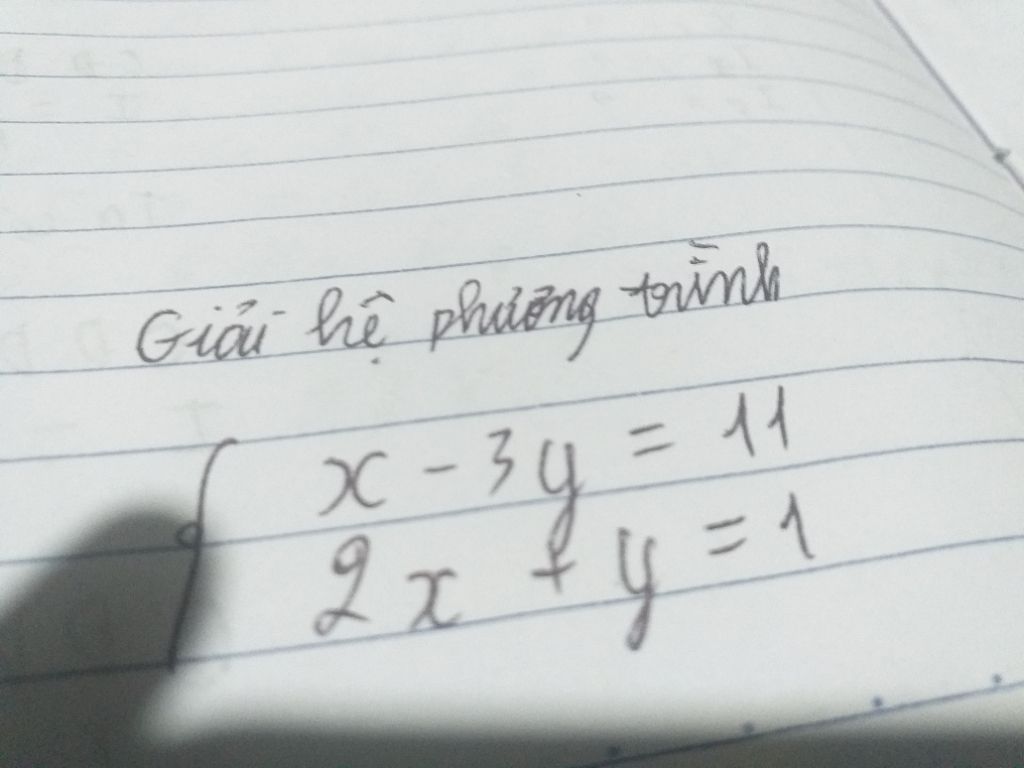 Giải hệ phương trình
x - 3y = 11
2x + y = 1